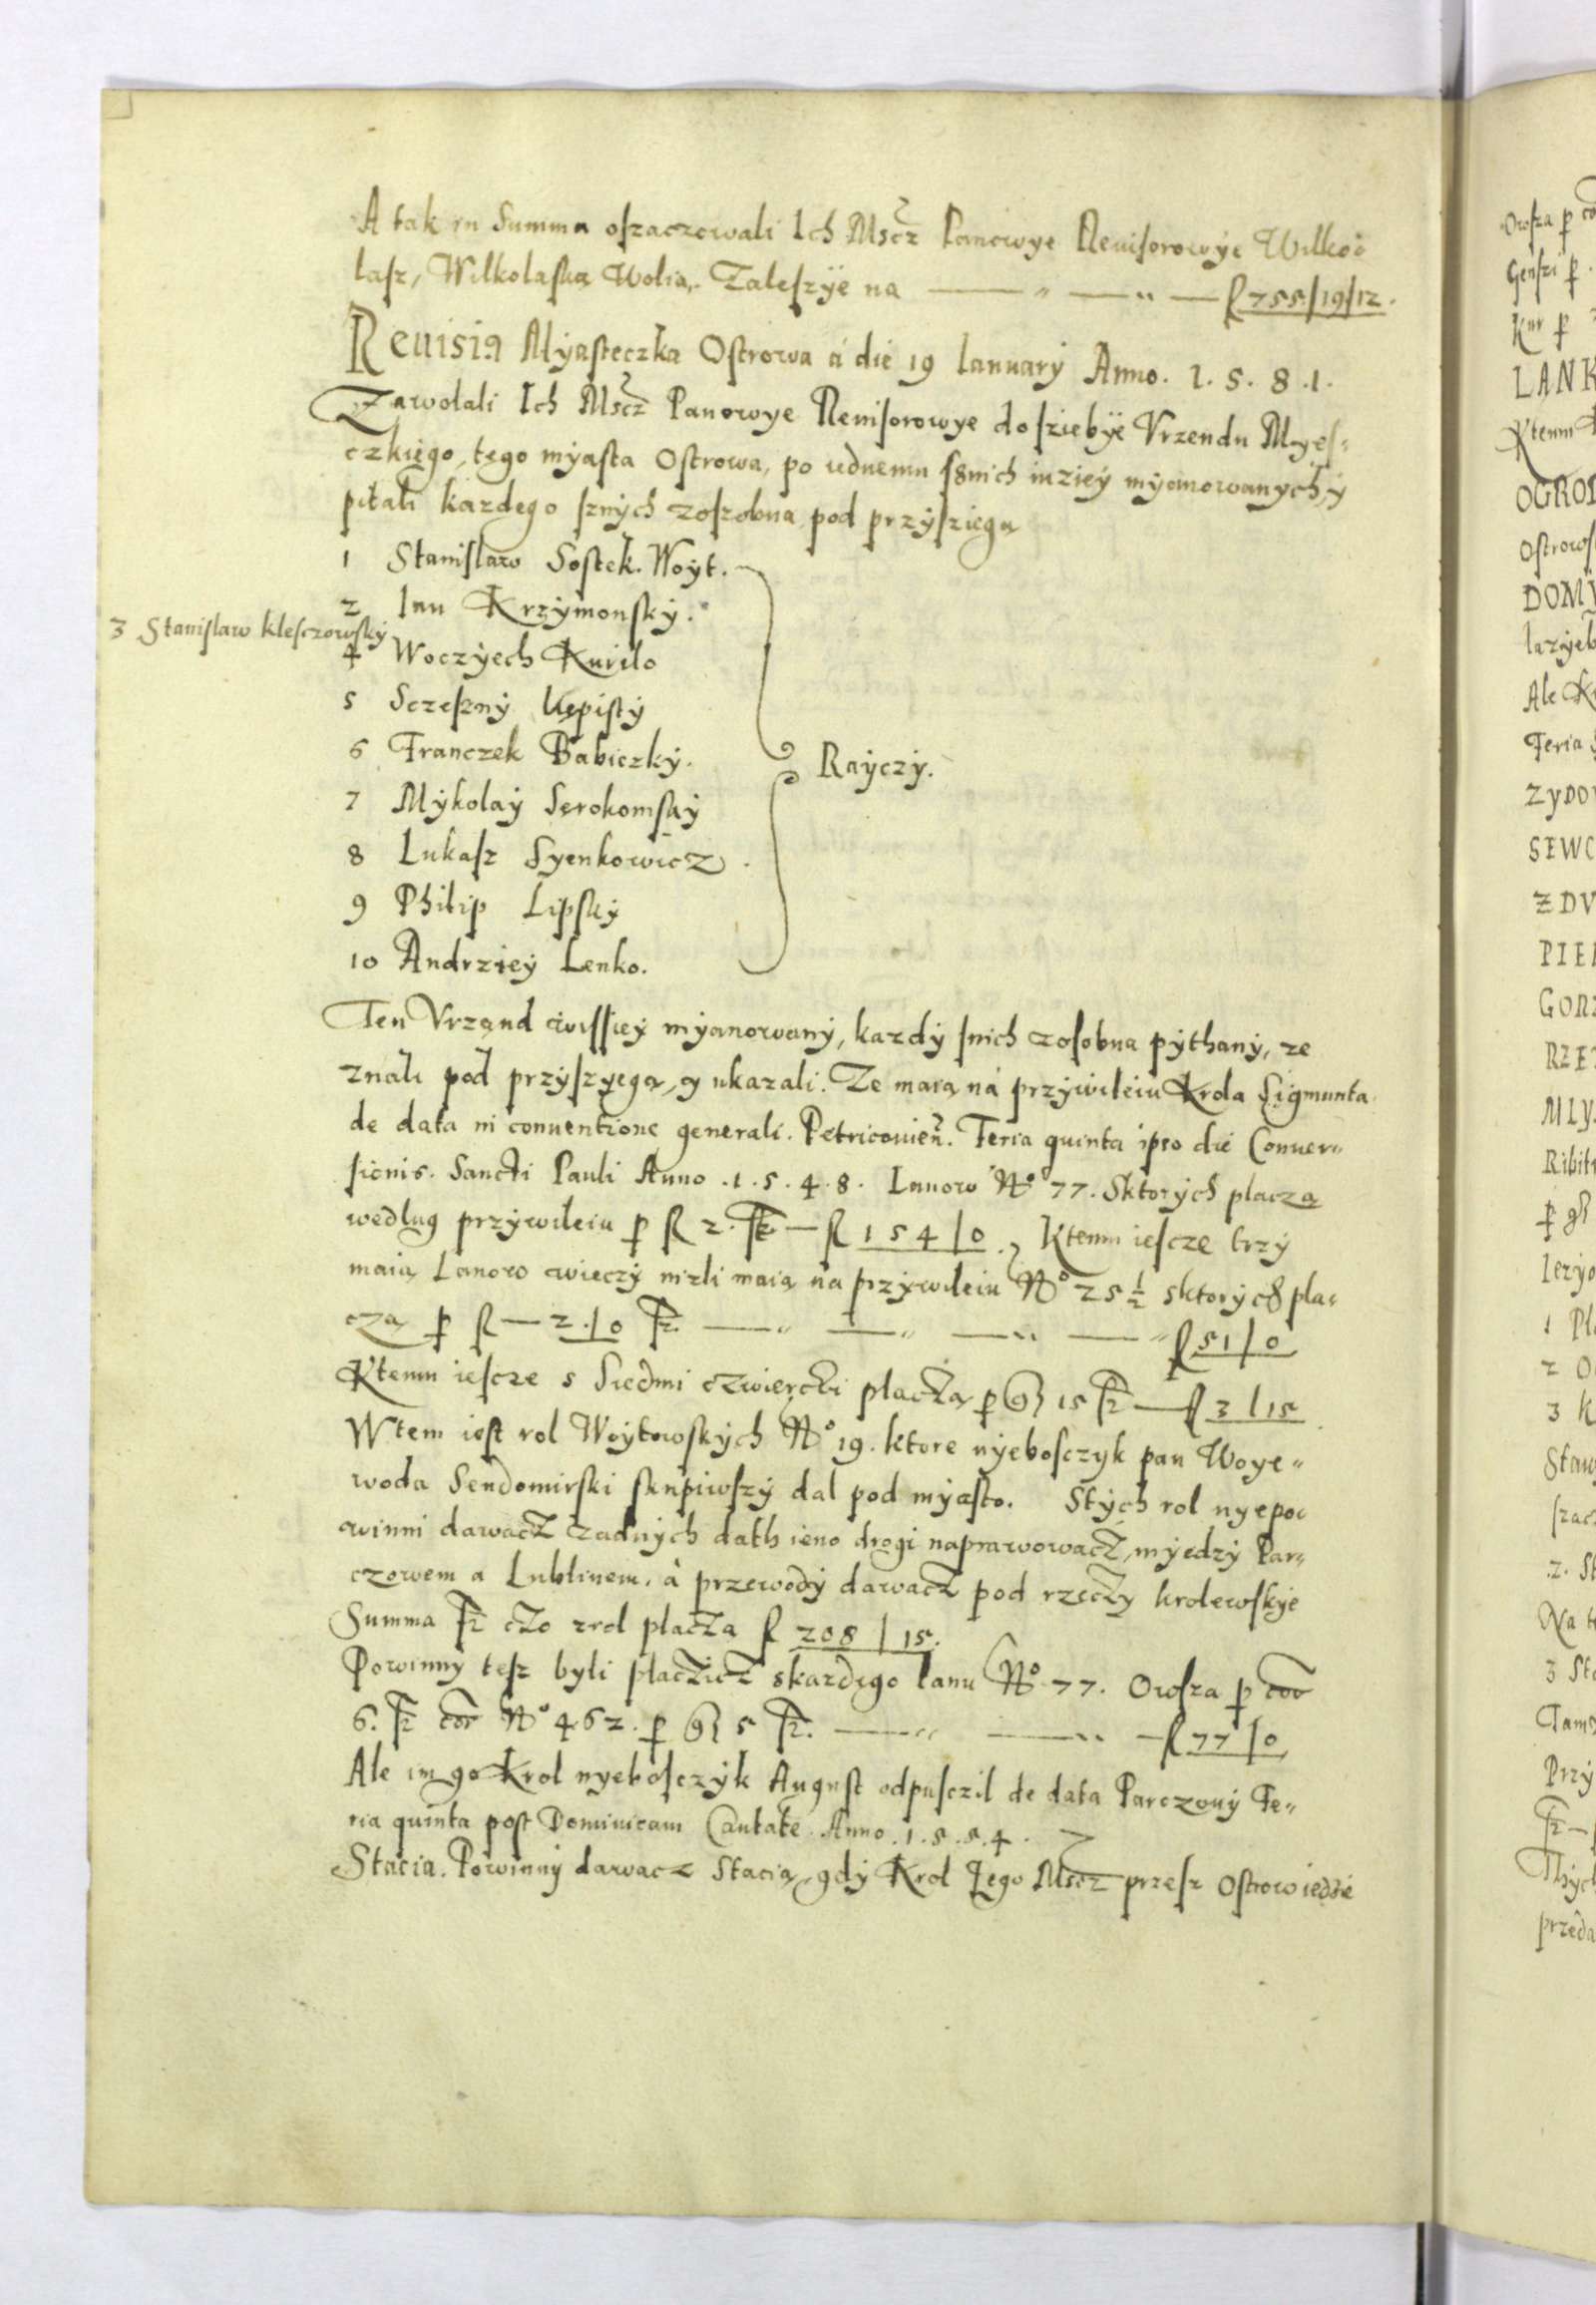 A tak in Summa oszaczowali Ich Mscz Panowye Reuisorowye Wilko
lasz, Wilkolaska Wolia, Zaleszÿe na — — — fl 755/19/12.
Reuisia Myasteczka Ostrowa á die 19 Ianuarÿ Anno. 1. 5. 8. 1.
Zawolali Ich Mscz Panowye Reuisorowye do sziebÿe Vrzendu Myes
czkiego, tego myasta Ostrowa, po iednemu nizieÿ myanowanych, ÿ
pitali kazdego sznÿch zoszobna pod przÿsziega
1 Stanislaw Sostek. Woÿt.
2 Ian Krzÿmonskÿ.
3 Stanislaw klesczowskÿ
4 Woczÿech Kurilo
5 Sczesznÿ Kepistÿ
6 Franczek Babiczkÿ.
7 Mÿkolaÿ Serokomskÿ
8 Lukasz Syenkowicz.
9 Philip Lipskÿ
10 Andrzieÿ Lenko.
Raÿczÿ.
Ten Vrzand wissieÿ mÿanowanÿ, kazdÿ snich zosobna pÿthanÿ, ze
znali pod przÿszyega, y ukazali. Ze maia ná przÿwileiu Krola Sigmunta
de data in conuentione generali. Petricouien. Feria quinta ipso die Conuer
sionis. Sancti Pauli Anno .1.5.4.8. Lanow No 77. Sktorÿch placza
wedlug przÿwileiu p fl 2. — fl 154/0. Ktemu iescze trzÿ
maia Lanow wieczÿ nizli maia na przÿwileiu No 25 ½ sktorÿch pla
cza p fl — 2/0 — — — — fl 51/0
Ktemu iescze s Siedmi czwierczi placza p 15 — fl 3/15
Wtem iest rol Woÿtowskÿch No 19. ktore nÿebosczyk pan Woye
woda Sendomirski skupiwszÿ dal pod mÿasto. Stÿch rol nyepo
winni dawacz zadnÿch dath ieno drogi naprawowacz, mÿedzÿ Par
czowem a Lublinem, à przewodÿ dawacz pod rzeczÿ krolewskÿe
Summa czo zrol placza fl 208/15.
Powinnÿ tesz byli placzicz skazdego lanu No 77. Owsza p cor
6. cor No 462. p 5 — — — fl 77/0
Ale im go Krol nyebosczÿk August odpusczil de data Parczouÿ Fe
ria quinta post Dominicam Cantate Anno .1.5.5.4.
Stacia. Powinnÿ dawacz Stacia, gdÿ Krol Iego Mscz przesz Ostrow iedzie